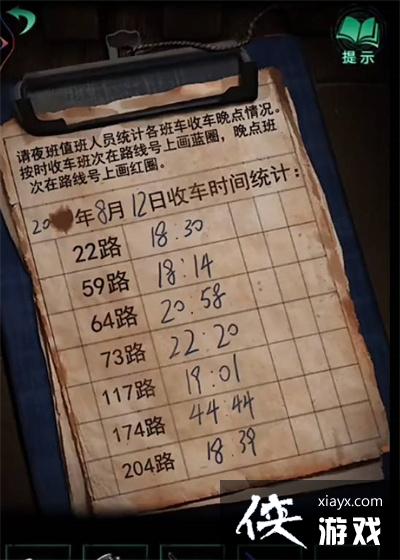 提示
请夜班值班人员统计各班车收车晚点情况。
按时收车班次在路线号上画蓝圈，晚点班
次在路线号上画红圈。
20 年8月12日收车时间统计：
22路 18:30
59路 18:14
64路 20:58
73路 22:20
117路 19:01
174路 44:44
204路 18:39
侠 xiayx.com
游戏